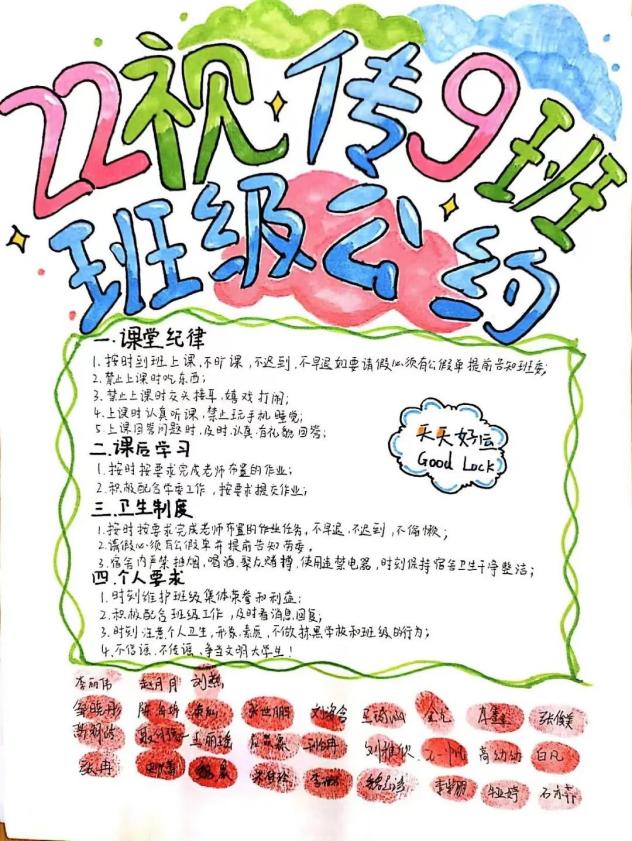 22视传9班
班级公约
一.课堂纪律
1.按时到班上课,不旷课,不迟到,不早退如要请假必须有公假单提前告知班委;
2.禁止上课时吃东西;
3.禁止上课时交头接耳,嬉戏打闹;
4.上课时认真听课,禁止玩手机睡觉;
5.上课回答问题时,及时,认真有礼貌回答;
天天好运
Good Luck
二.课后学习
1.按时按要求完成老师布置的作业;
2.积极配合学委工作,按要求提交作业;
三.卫生制度
1.按时按要求完成老师布置的作业任务,不早退,不迟到,不偷懒;
2.请假必须有公假单并提前告知劳委,
3.宿舍内严禁抽烟,喝酒,聚众赌博,使用违禁电器,时刻保持宿舍卫生干净整洁;
四.个人要求
1.时刻维护班级集体荣誉和利益;
2.积极配合班级工作,及时看消息回复;
3.时刻注意个人卫生,形象,素质,不做抹黑学校和班级的行为;
4.不信谣,不传谣,争当文明大学生!
李丽伟 赵月月
邹晓彤 张俊美
高幼幼 白凡
张冉